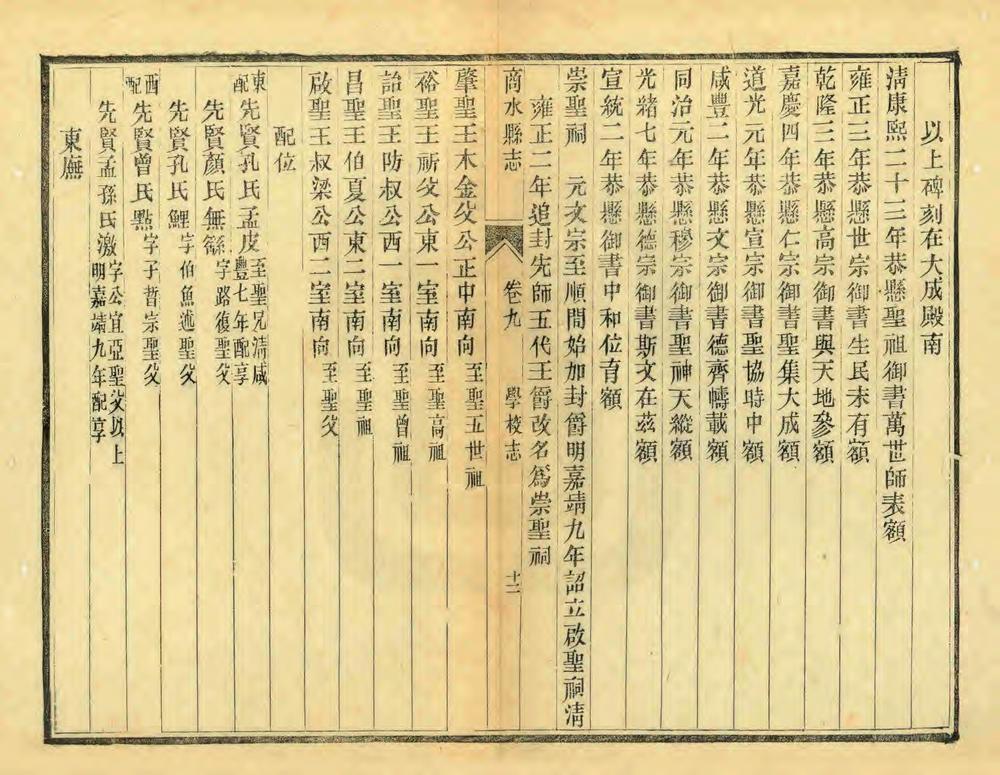 以上碑刻在大成殿南
清康熙二十三年恭懸聖祖御書萬世師表額
雍正三年恭懸世宗御書生民未有額
乾隆三年恭懸高宗御書與天地參額
嘉慶四年恭懸仁宗御書聖集大成額
道光元年恭懸宣宗御書聖協時中額
咸豐二年恭懸文宗御書德齊幬載額
同治元年恭懸穆宗御書聖神天縱額
光緒七年恭懸德宗御書斯文在茲額
宣統二年恭懸御書中和位育額
崇聖祠 元文宗至順間始加封爵明嘉靖九年詔立啟聖祠清
雍正二年追封先師五代王爵改名為崇聖祠
商水縣志 卷九 學校志 十二
肇聖王木金父公正中南向 至聖五世祖
裕聖王祈父公東一室南向 至聖高祖
詒聖王防叔公西一室南向 至聖曾祖
昌聖王伯夏公東二室南向 至聖祖
啟聖王叔梁公西二室南向 至聖父
配位
東配 先賢孔氏孟皮 至聖兄清咸豐七年配享
先賢顏氏無繇 字路復聖父
先賢孔氏鯉 字伯魚述聖父
西配 先賢曾氏點 字子晳宗聖父
先賢孟孫氏激 字公宜亞聖父以上明嘉靖九年配享
東廡